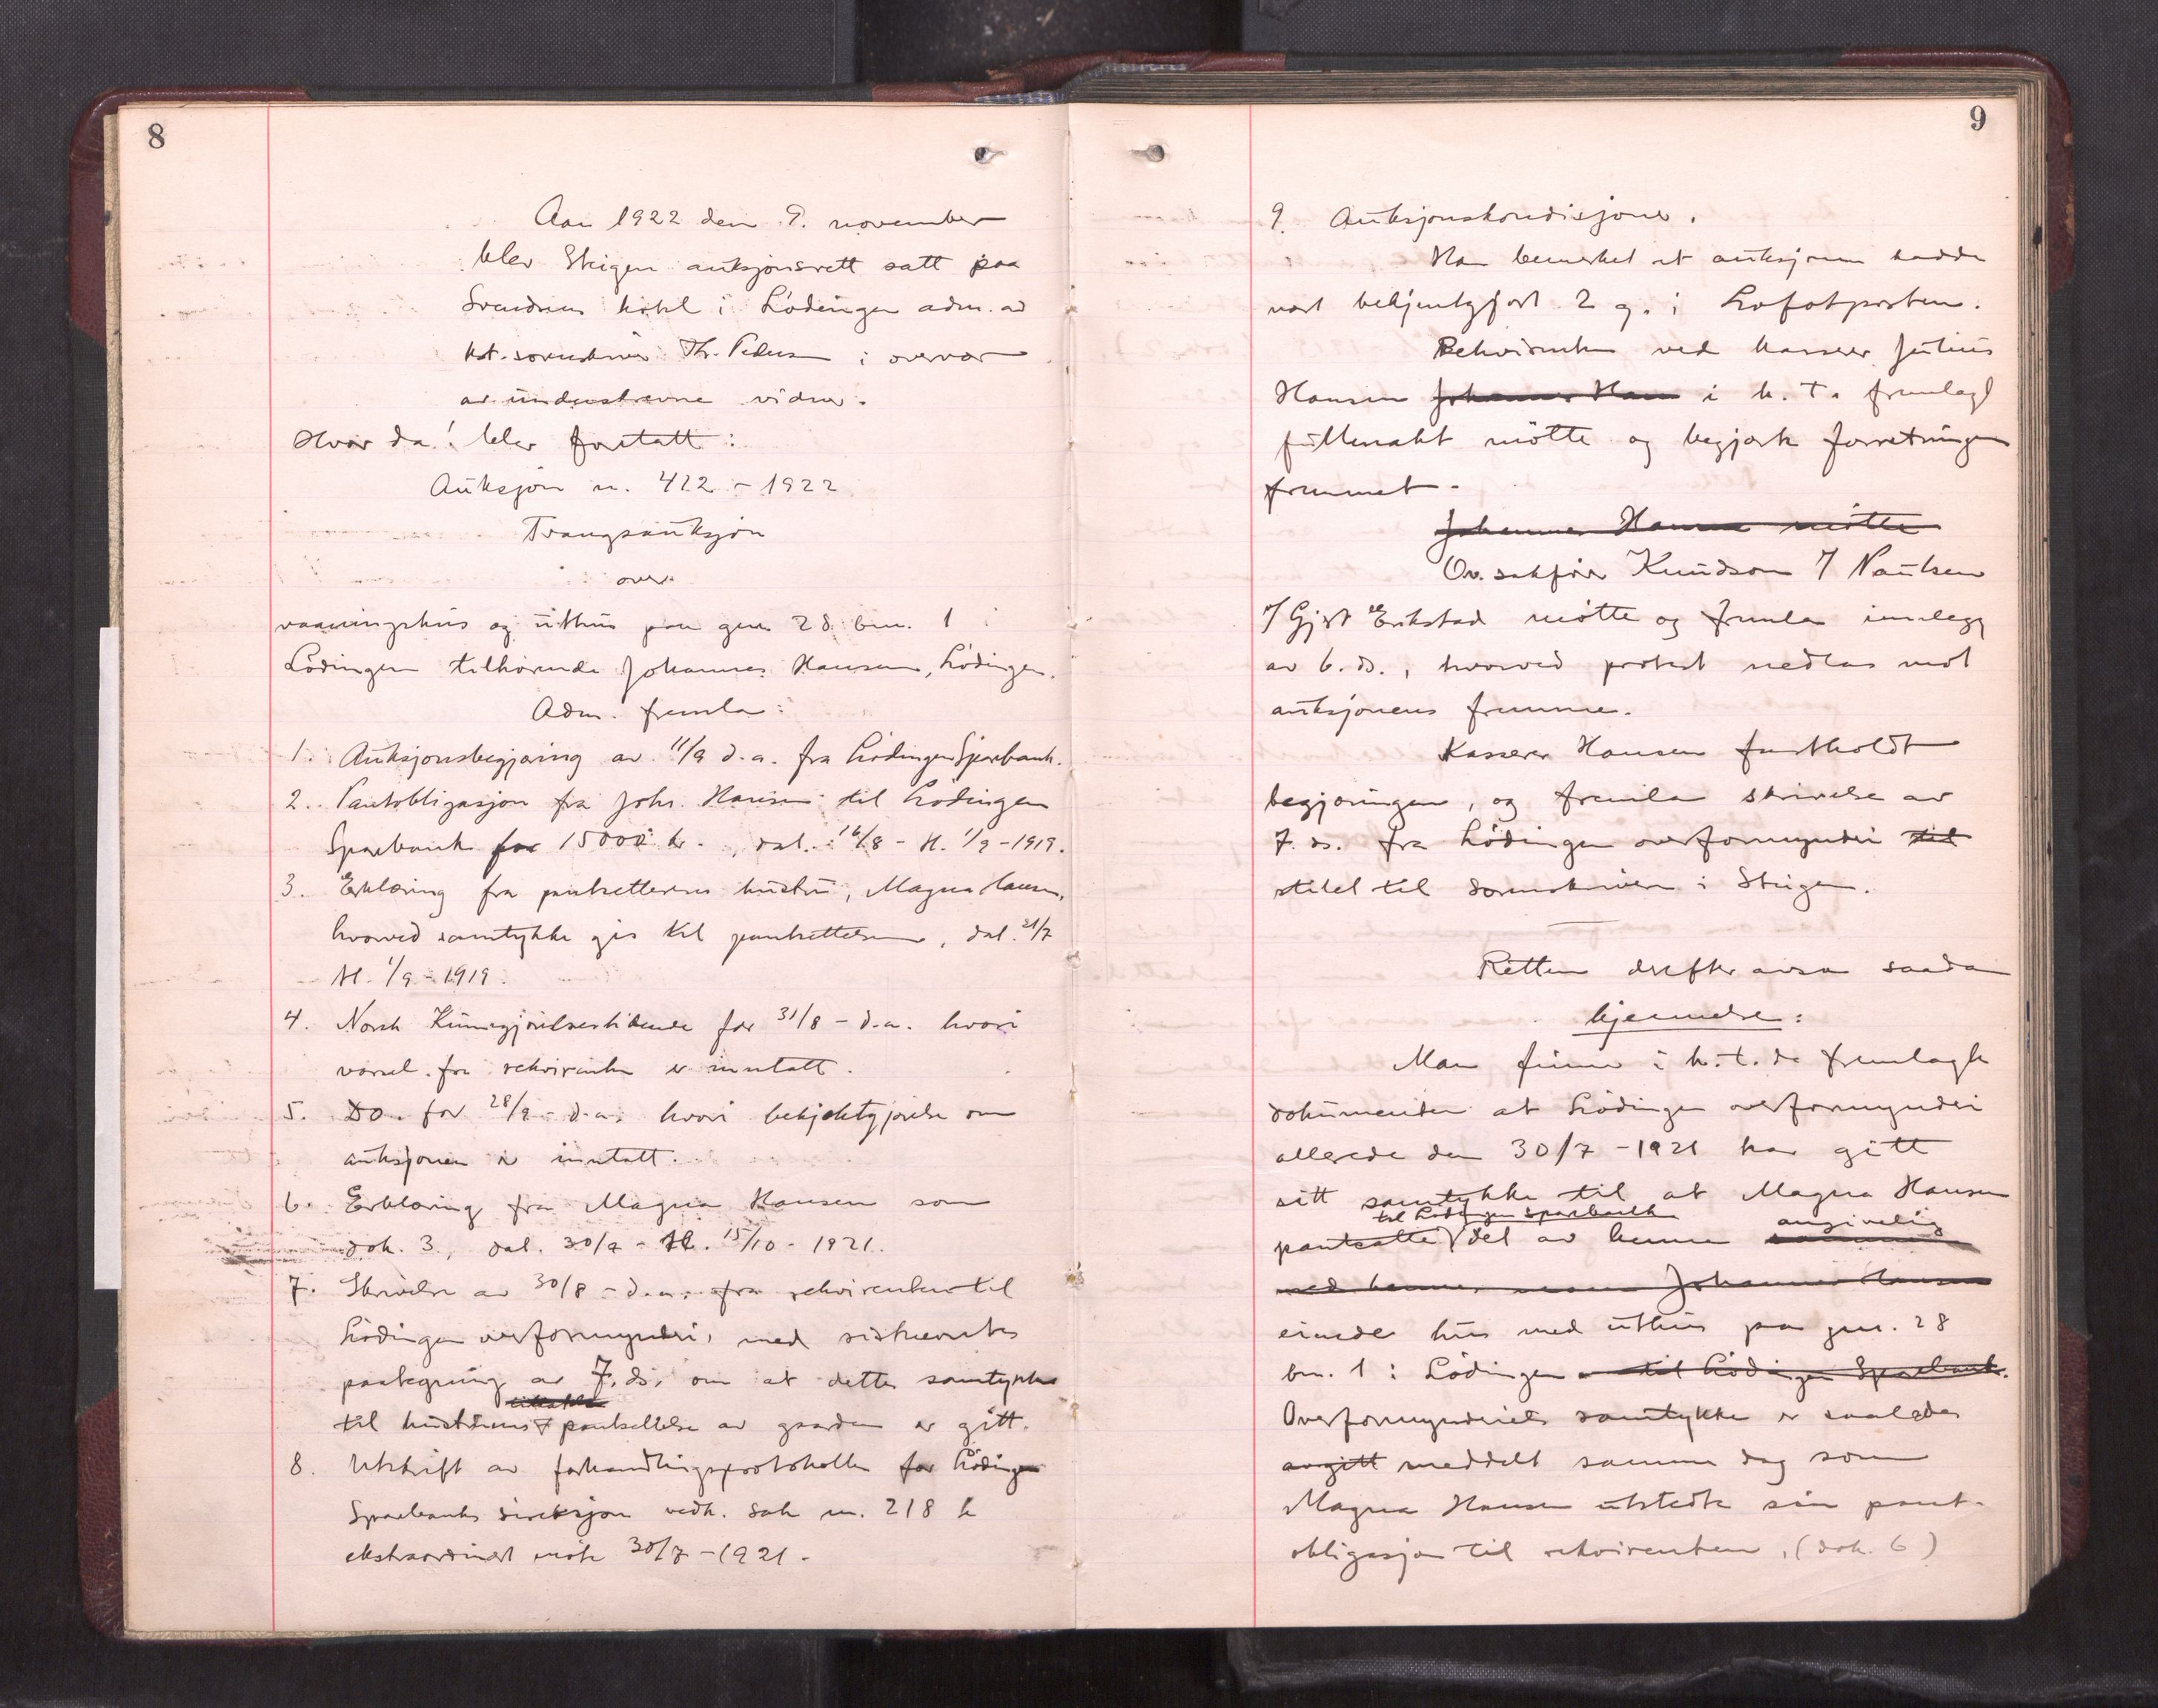 8
Aar 1922 den 9. november
blev Steigen auksjonsrett satt paa
hotel i Lödingen adm. av
kst. sorenskriver Th. Pedersen i overvær
av underskrevne vidner.
Hvor da! blev foretatt:
Auksjon nr. 412 - 1922
Tvangsauksjon
over
vaaningshus og uthus paa gnr. 28 bnr. 1 i
Lödingen tilhörende Johannes Hansen, Lödingen.
Adm. fremla:
1. Auksjonsbegjæring av 11/9 d.a. fra Lödingen Sparebank.
2. Pantobligasjon fra Johs. Hansen til Lödingen
Sparebank for 15000 kr., dat. 16/8 - tl. 1/9 - 1919.
3. Erklæring fra pantsetterens hustru, Magna Hansen,
hvorved samtykke gis til pantsettelsen, dat. 21/7
tl. 1/9 - 1919.
4. Norsk Kunngjörelsestidende for 31/8 - d.a. hvori
varsel fra rekvirenten er inntatt.
5. Do. for 28/9 - d.a. hvori bekjentgjörelse om
auksjonen er inntatt.
6. Erklæring fra Magna Hansen som
dok. 3, dat. 30/7 - tl. 15/10 - 1921.
7. Skrivelse av 30/8 - d.a. fra rekvirenten til
Lödingen overformynderi, med sistnevntes
paategning av 7. ds. om at dettes samtykke
til hustruens pantsettelse av gaarden er gitt.
8. Utskrift av forhandlingsprotokollen for Lödingen
Sparebanks direksjon vedk. sak nr. 218 fra
ekstraordinært möte 30/7 - 1921.
9
9. Auksjonskondisjoner.
Han bemerket at auksjonen hadde
vært bekjentgjort 2 g. i Lofotposten.
Rekvirenten ved kasserer Julius
Hansen Johannes Hans i h. t. fremlagt
fullmakt mötte og begjærte forretningen
fremmet.
Johannes Hansen mötte
Ov. sakförer Knudson f/ Paulsen
f/ Gjert Erikstad mötte og fremla innlegg
av 6. ds., hvorved protest nedlas mot
auksjonens fremme.
Kasserer Hansen fastholdt
begjæringen, og fremla skrivelse av
7. ds. fra Lödingen overformynderi til
stilet til sorenskriveren i Steigen.
Retten derefter avsa saadan
kjennelse:
Man finner i h. t. de fremlagte
dokumenter at Lödingen overformynderi
allerede den 30/7 - 1921 har gitt
sitt samtykke til at Magna Hansen
til Lödingen Sparebank
pantsatte det av henne angivelig
med hennes mann Johannes Hansen
eiende hus med uthus paa gnr. 28
bnr. 1 i Lödingen til Lödingen Sparebank.
Overformynderiets samtykke er saaledes
avgitt meddelt samme dag som
Magna Hansen utstedte sin pant-
obligasjon til rekvirenten, (dok. 6)